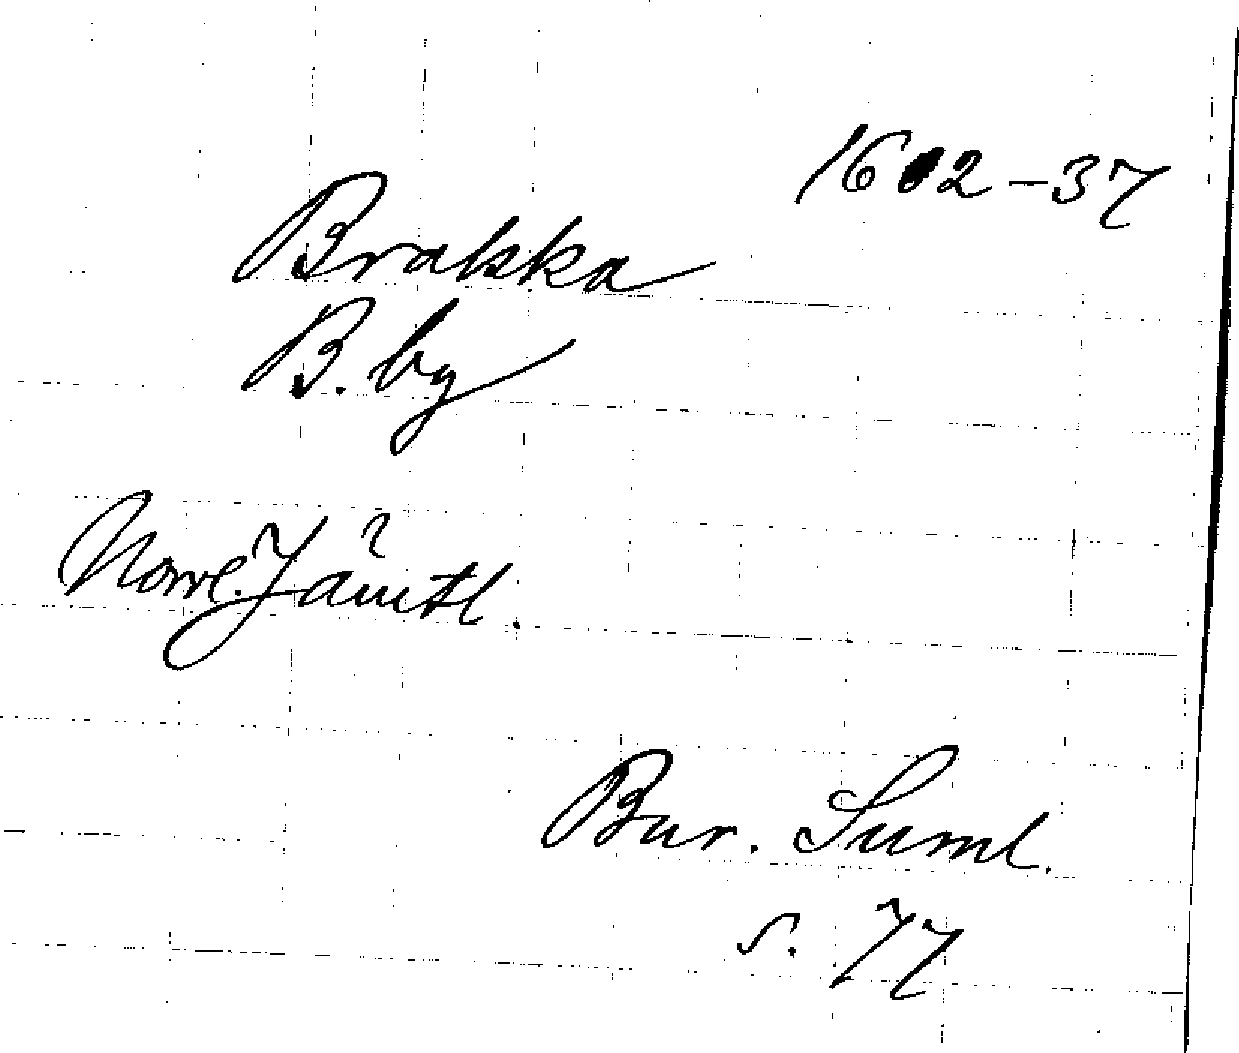 1602-37
Brakka
B. by
Norrl. Jämtl.
Bur. Suml.
s. 77